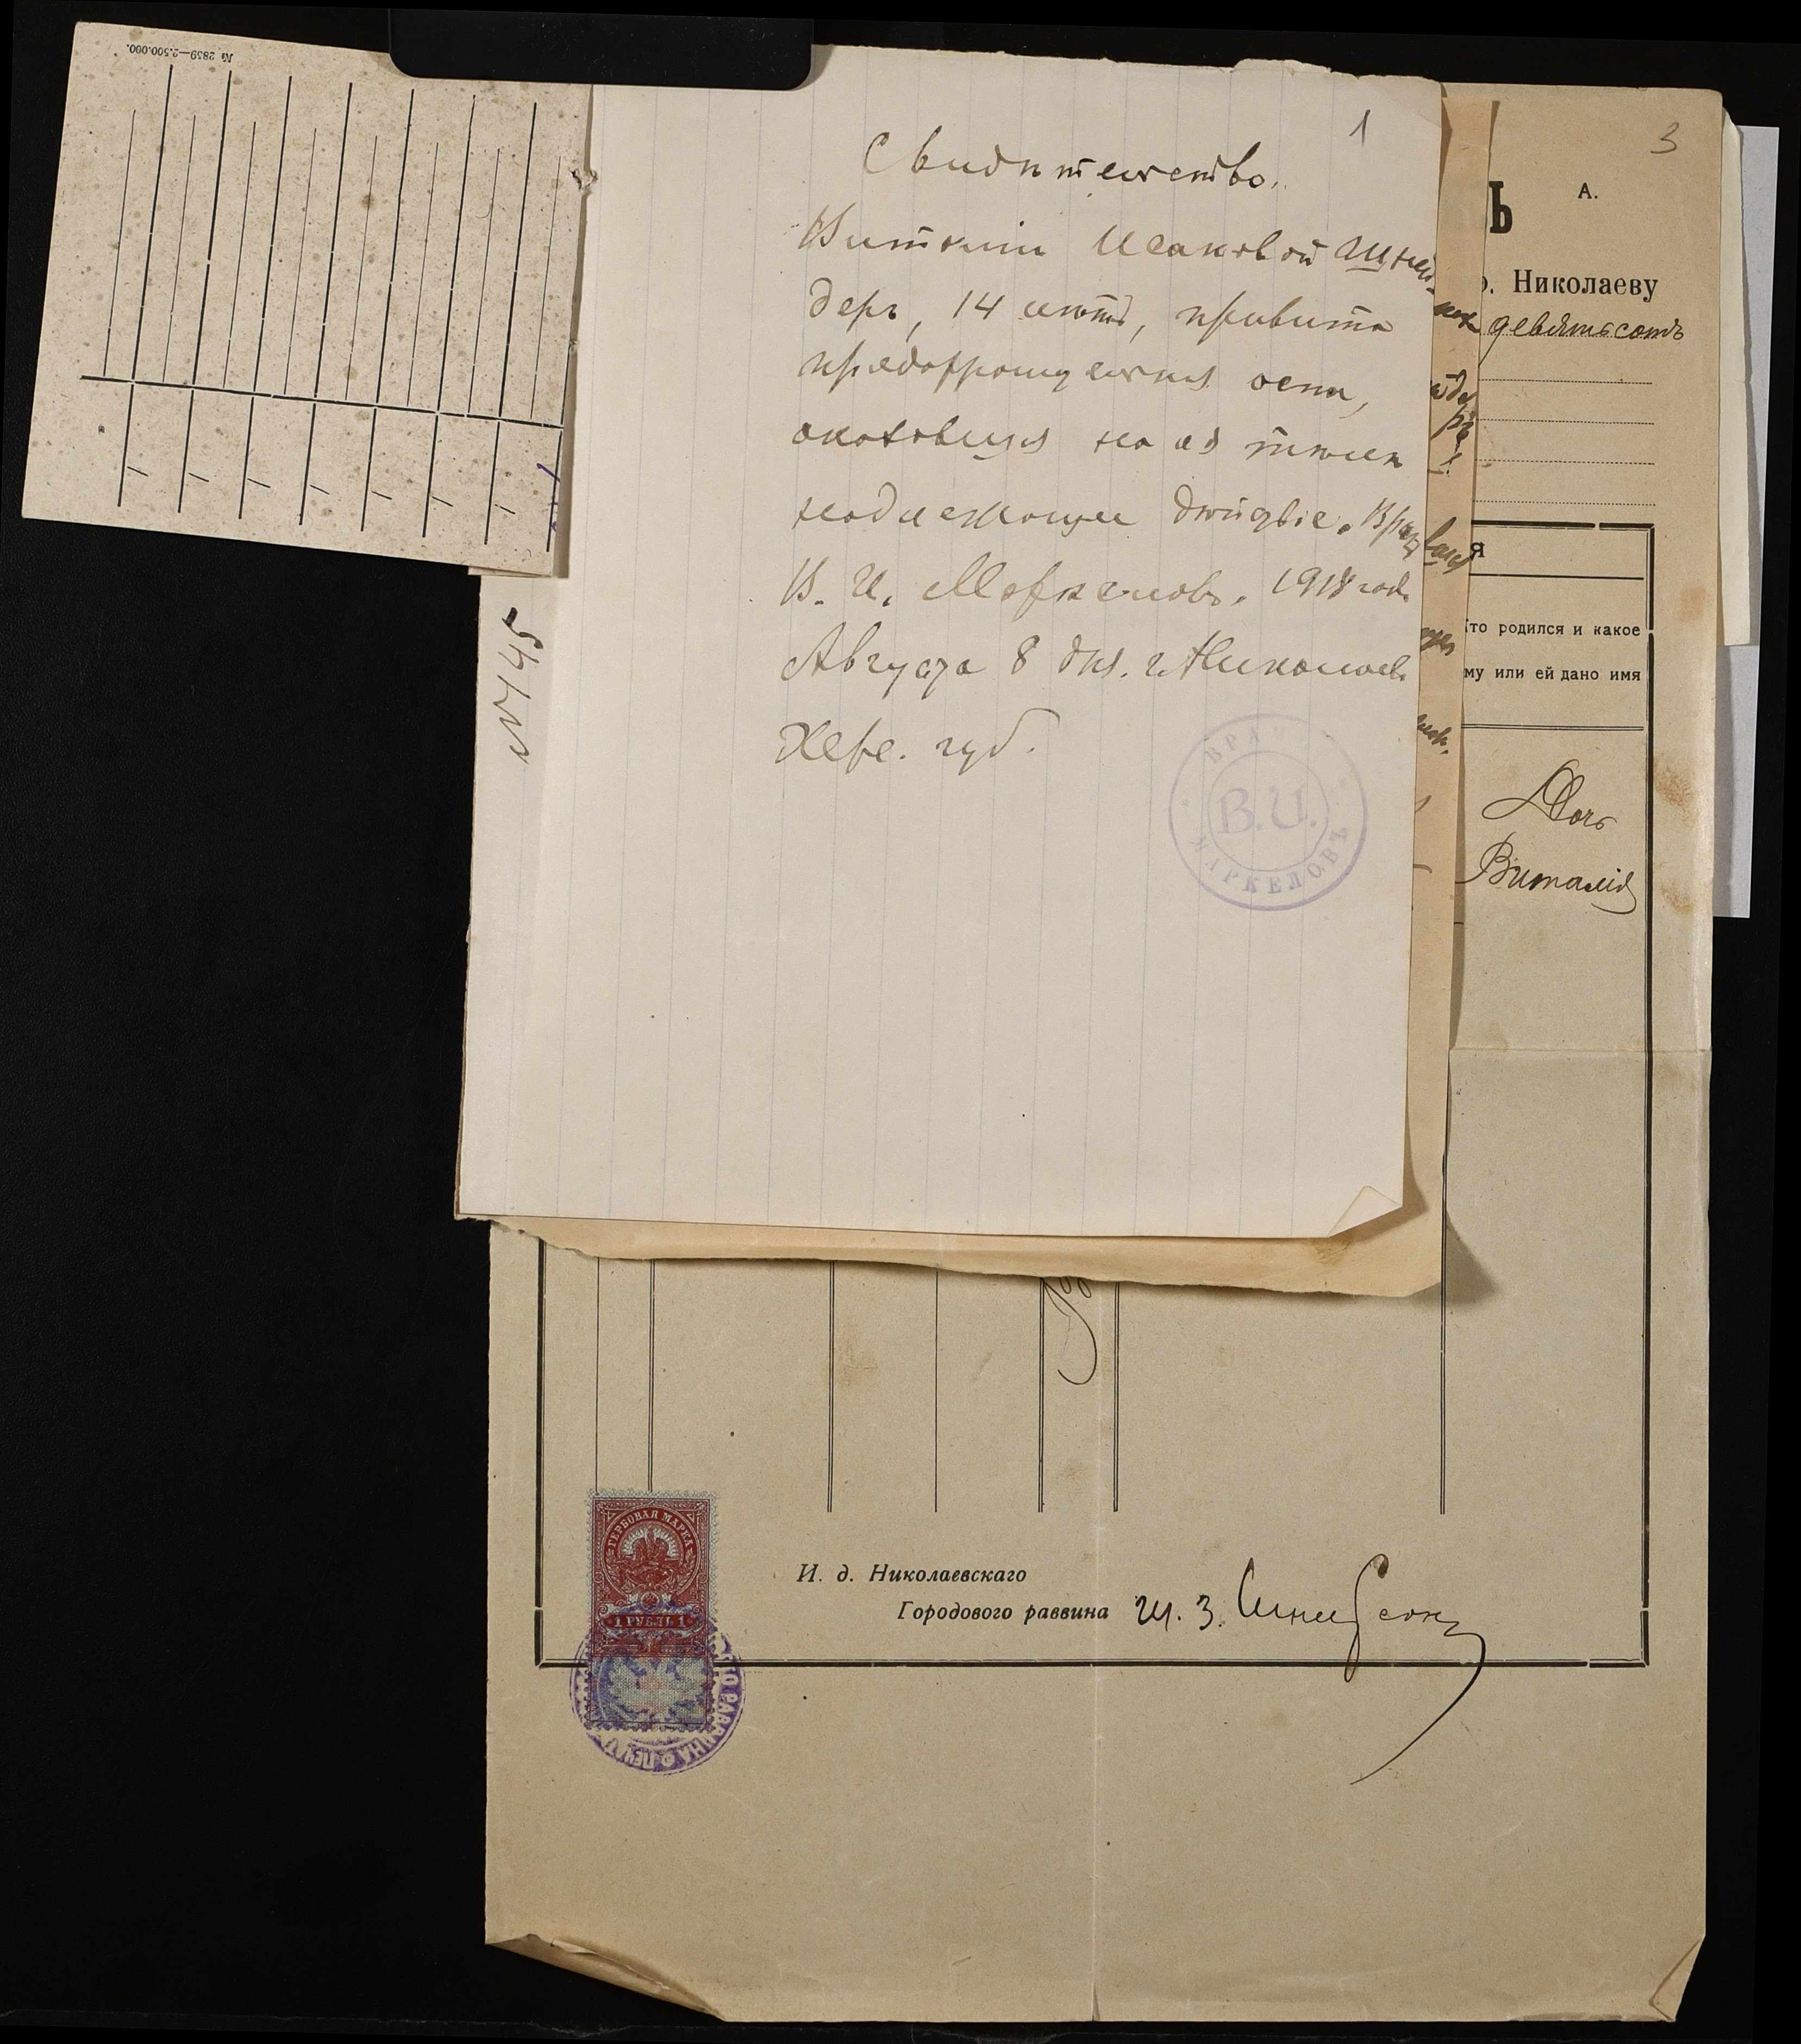 № 2859—2.500.000.
1
Свидѣтельство.
Виталіи Исаковой Шней-
деръ, 14 лѣтъ, привита
предохранительная оспа,
оказавшая на ея тѣлѣ
надлежащее дѣйствіе. Врачъ
В. И. Маркеловъ. 1918 года
Августа 8 дня. г. Николаевъ
Херс. губ.
ВРАЧЪ
В.И.
МАРКЕЛОВЪ
№145
3
Ь
А.
. Николаеву
девятьсотъ
я
Кто родился и какое
ему или ей дано имя
Дочь
Виталія
ГЕРБОВАЯ МАРКА
1 РУБЛЬ 1
ГО РАВВИНА ПЕЧ
И. д. Николаевскаго
Городового раввина Ш. З.